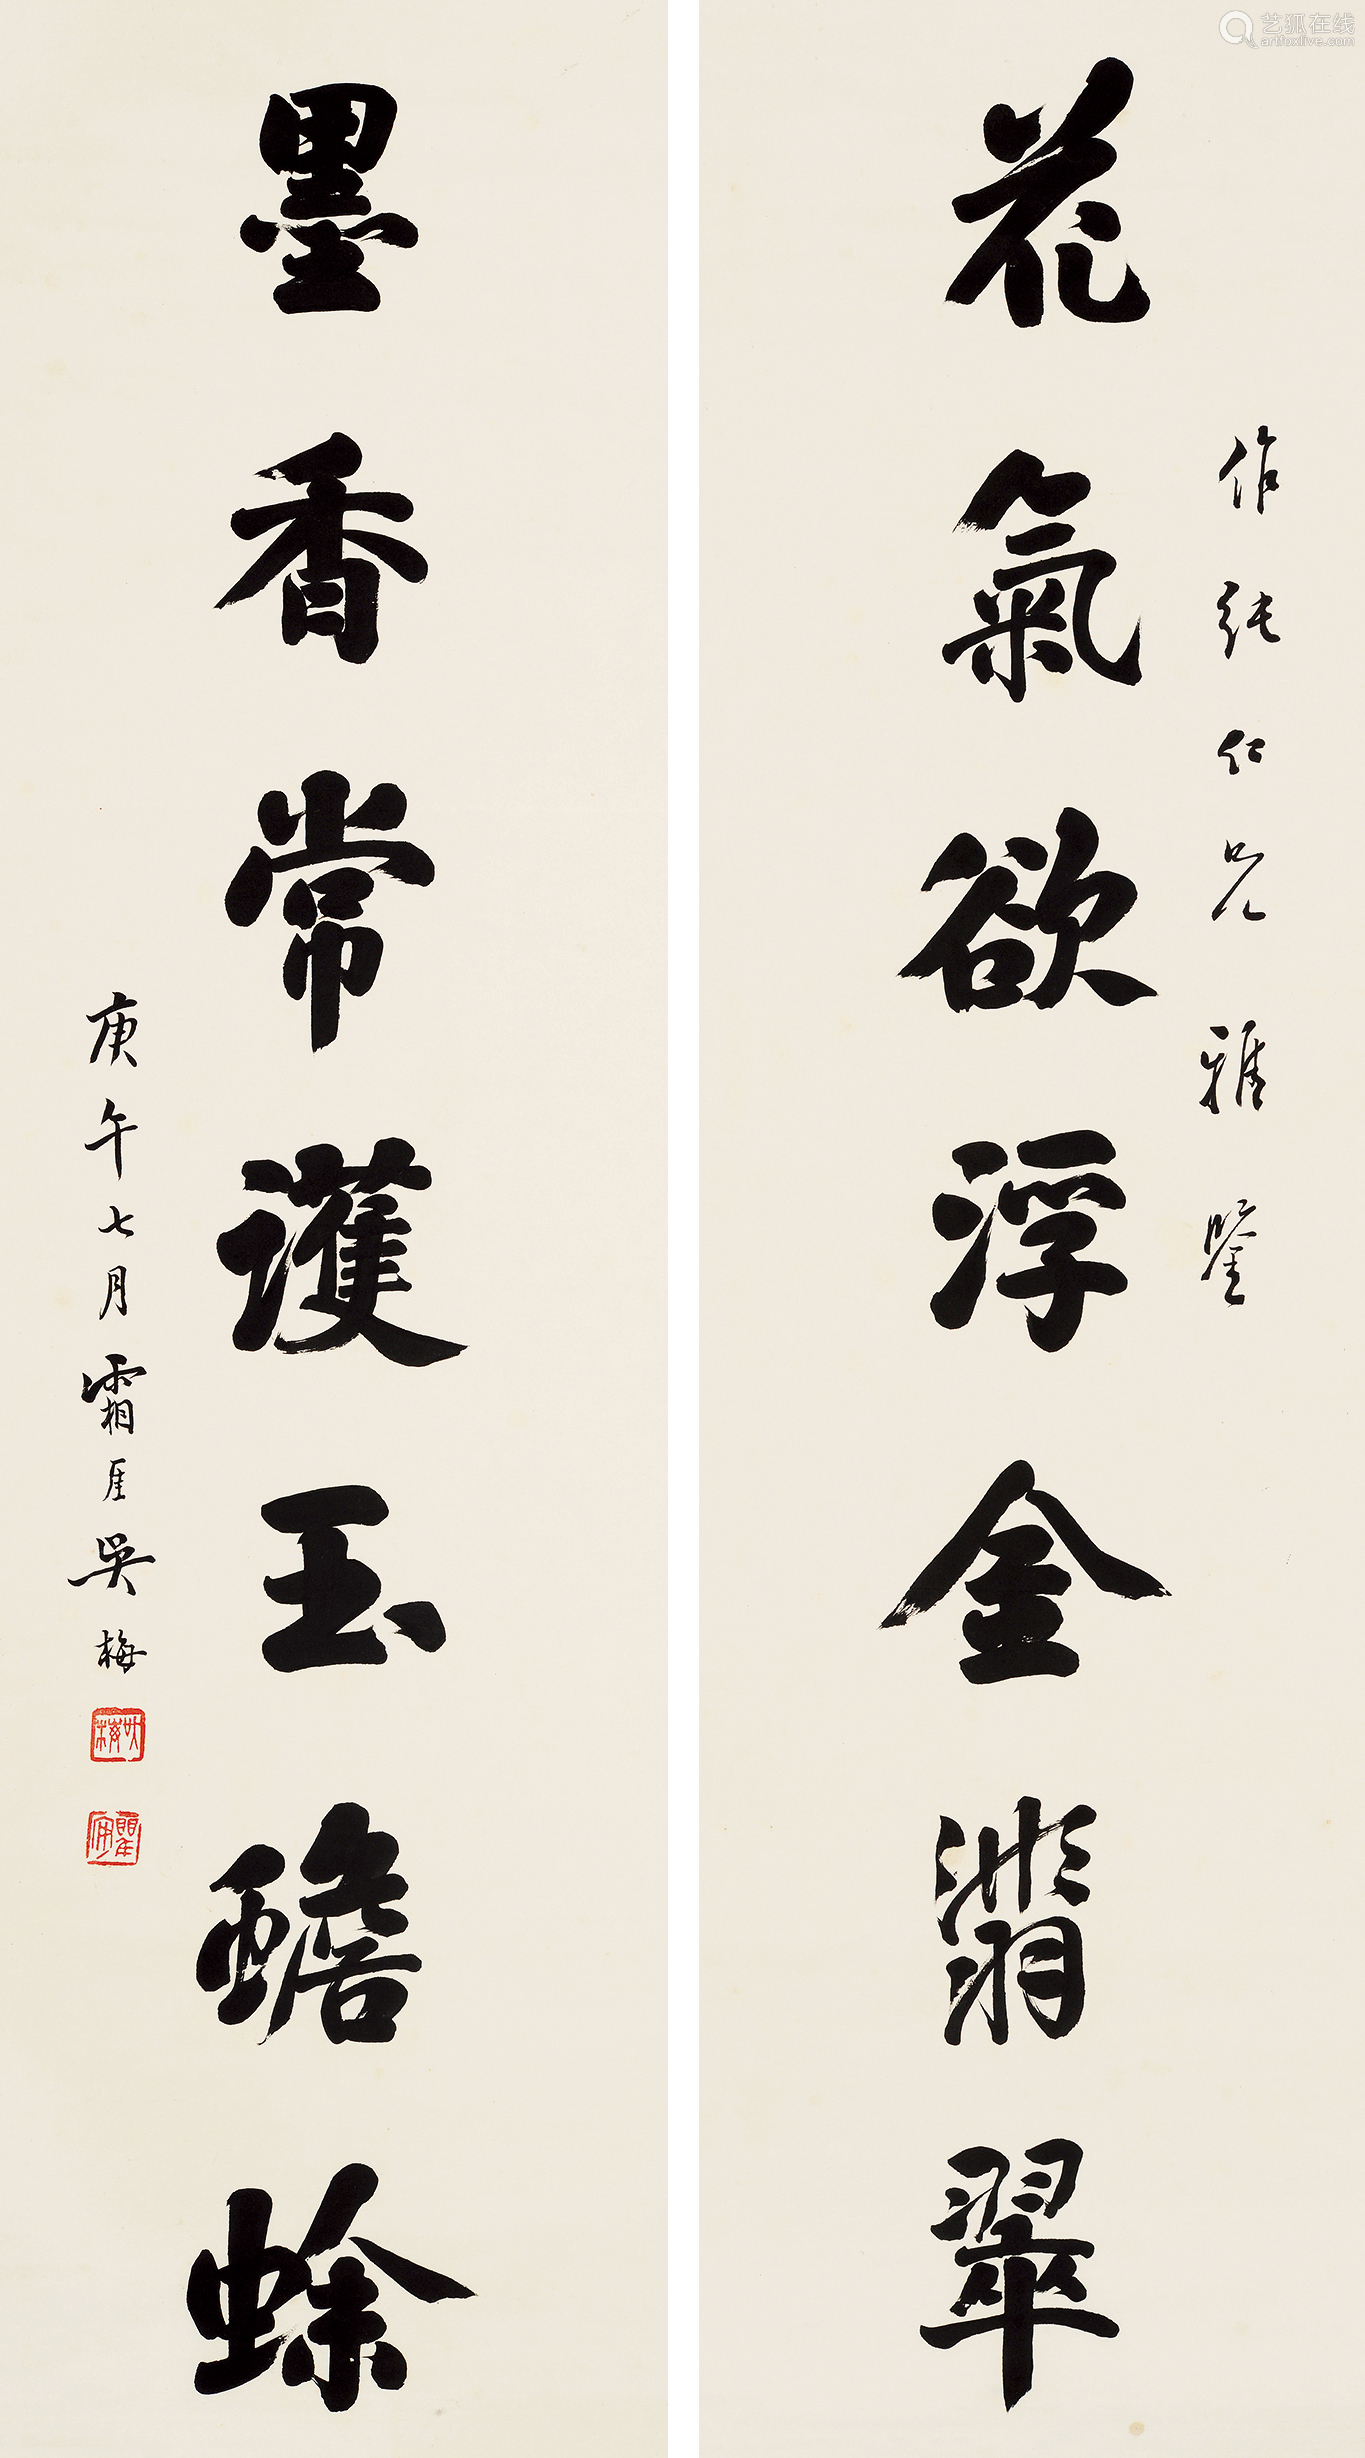 花氣欲浮金翡翠
作純仁兄 雅鑒
墨香常護玉蟾蜍
庚午七月霜厓吳梅
吳梅
瞿安
艺狐在线
artfoxlive.com